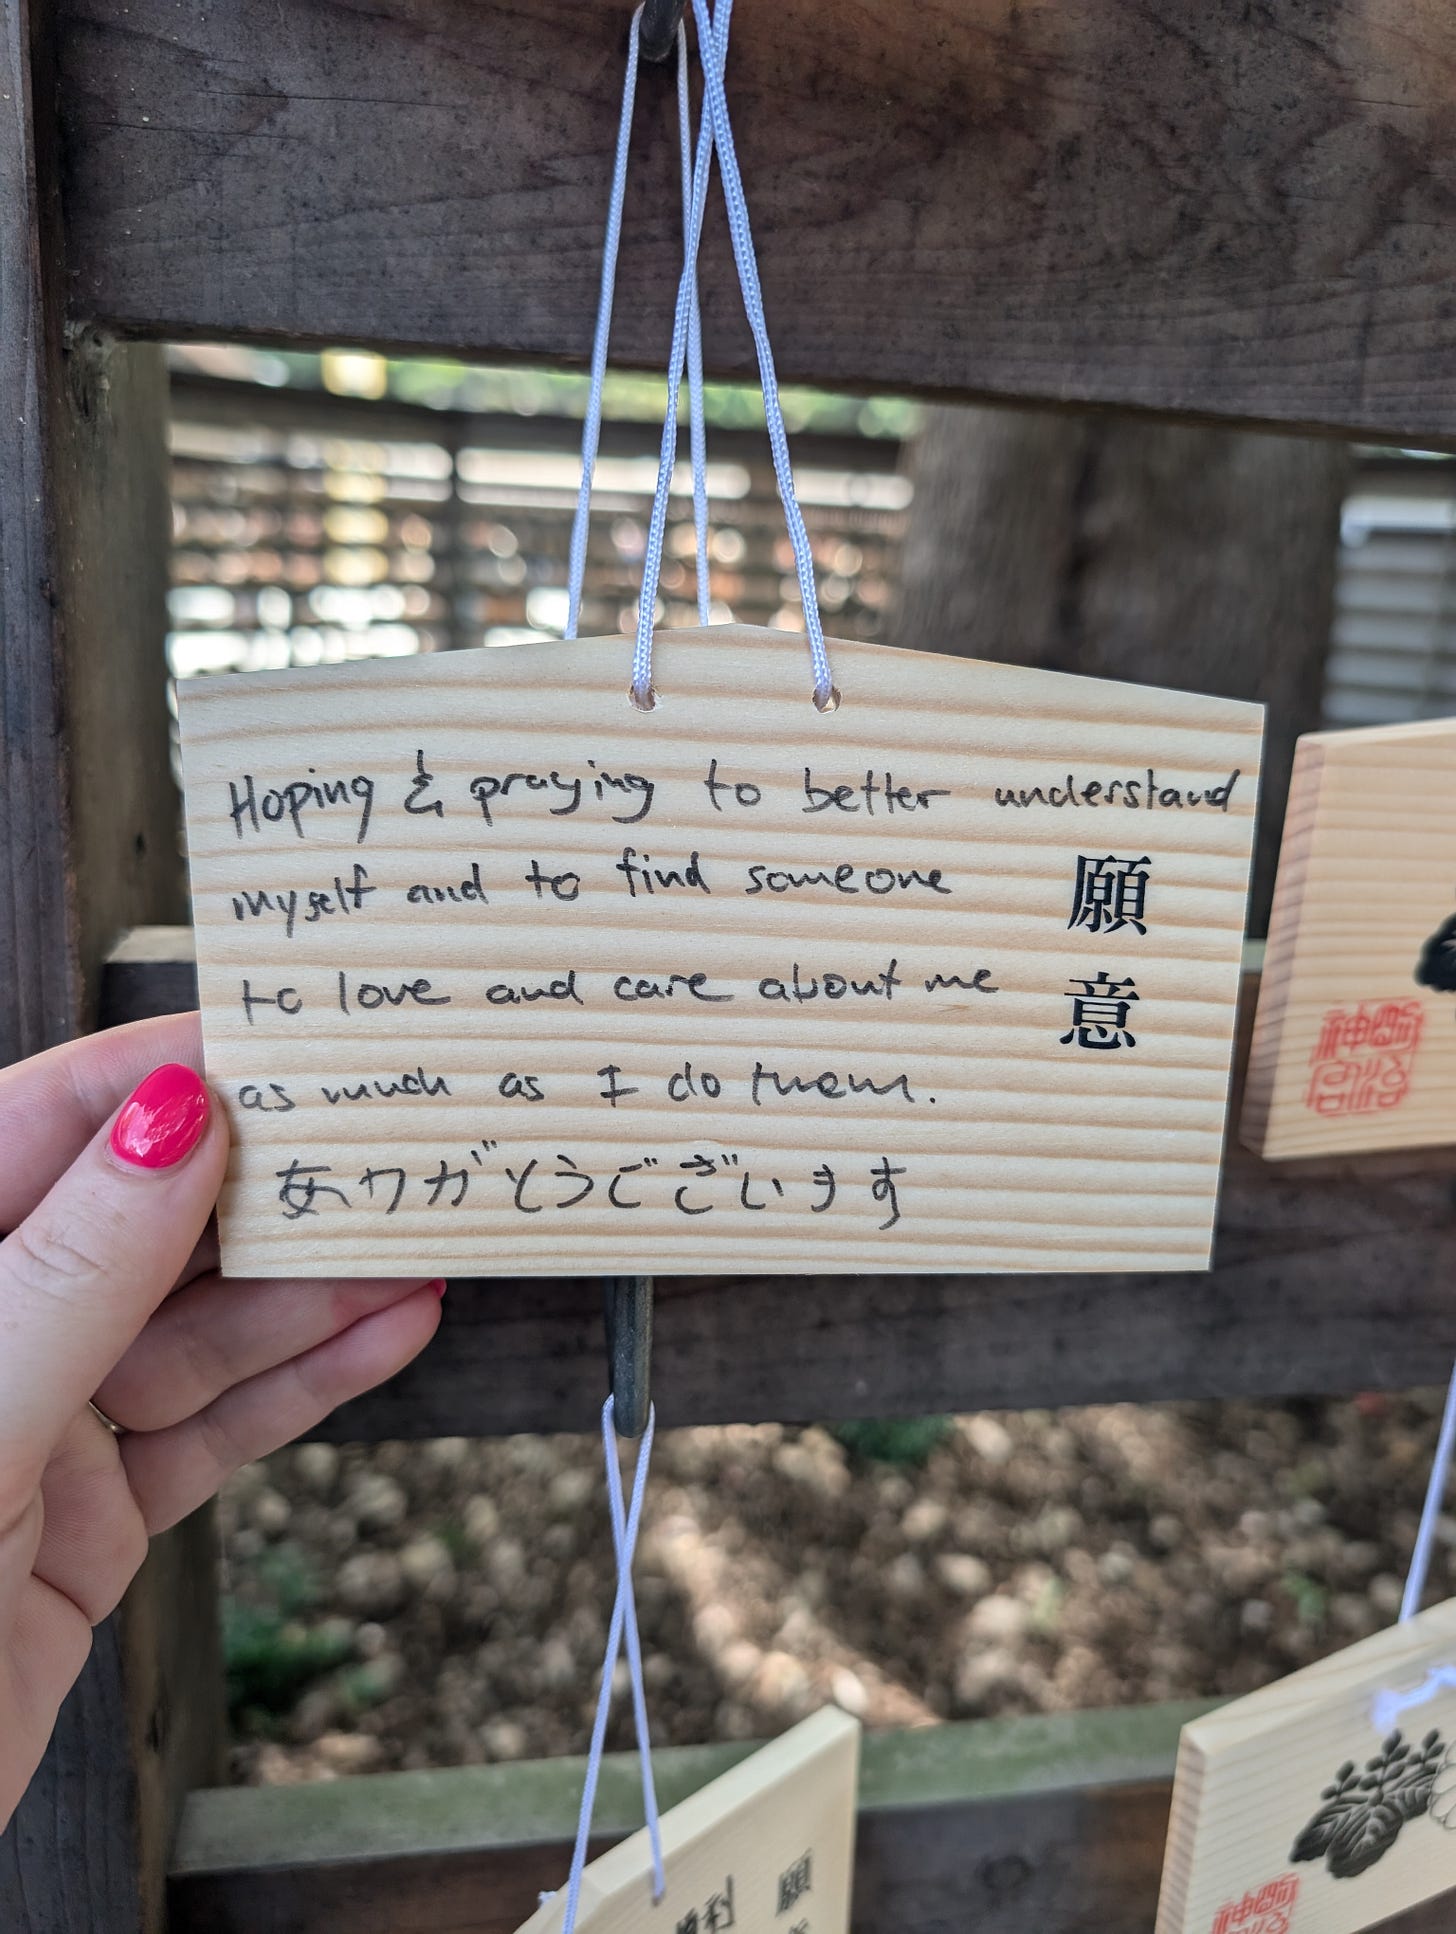 Hoping & praying to better understand
myself and to find someone
to love and care about me
as much as I do them.
ありがとうございます
願意
願